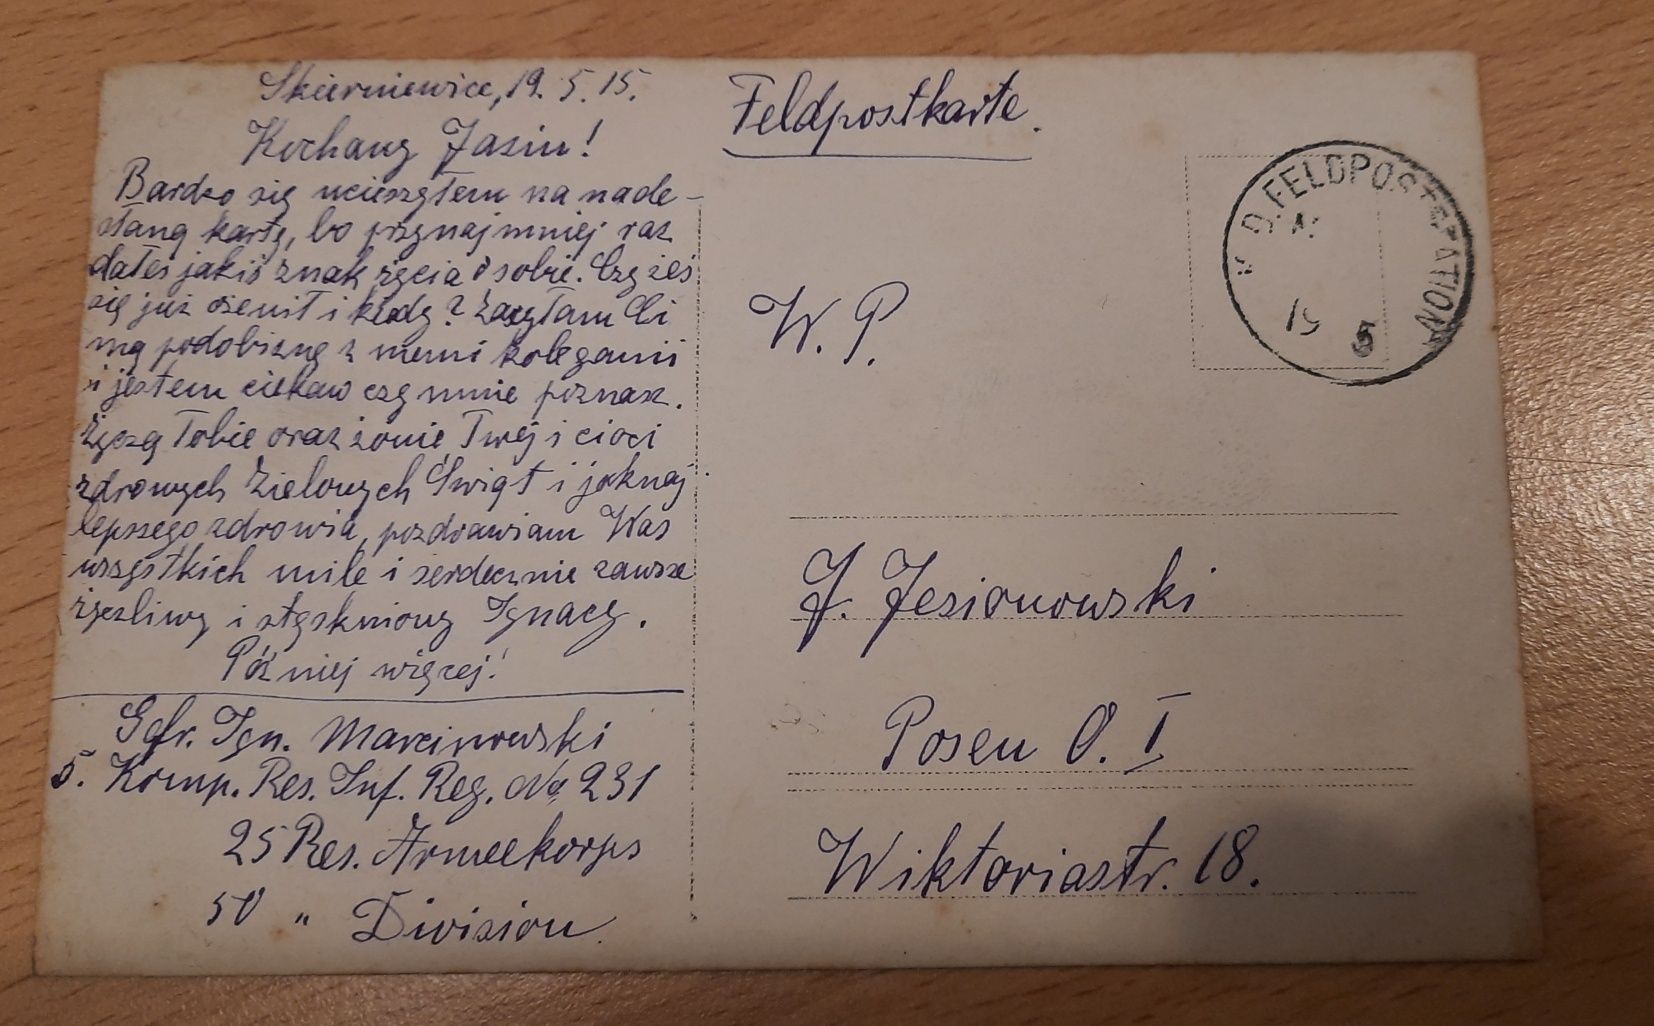 Skierniewice, 19. 5. 15.
Kochany Jasiu!
Bardzo się ucieszyłem na nade-
słaną kartę, bo przynajmniej raz
dałeś jakiś znak życia o sobie. Czy żeś
się już ożenił i kiedy? Załyłam Ci
mą podobiznę z memi kolegami
i jestem ciekaw czy mnie poznasz.
Życzę Tobie oraz żonie Twej i cioci
zdrowych Zielonych Świąt i jaknaj
lepszego zdrowia, pozdrawiam Was
wszystkich mile i serdecznie zawsze
życzliwy i stęskniony Ignacy.
Później więcej!
Gefr. Ign. Marcinowski
5. Komp. Res. Inf. Reg. No 231
25 Res. Armeekorps
50 " Division
Feldpostkarte.
K. D. FELDPOSTSTATION
19 5
W. P.
J. Jesionowski
Posen O. I
Wiktoriastr. 18.